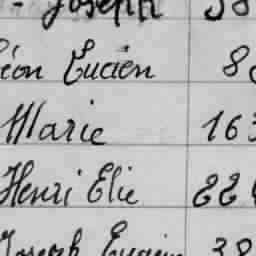 - Joseph 38
Léon Lucien 8
Marie 163
Henri Elie 221
Joseph Eugène 38